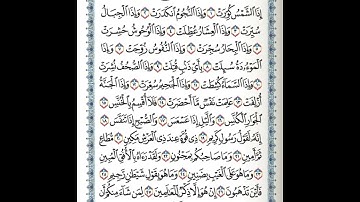 إِذَا الشَّمْسُ كُوِّرَتْ وَإِذَا النُّجُومُ انكَدَرَتْ وَإِذَا الْجِبَالُ
سُيِّرَتْ وَإِذَا الْعِشَارُ عُطِّلَتْ وَإِذَا الْوُحُوشُ حُشِرَتْ
وَإِذَا الْبِحَارُ سُجِّرَتْ وَإِذَا النُّفُوسُ زُوِّجَتْ وَإِذَا
الْمَوْءُودَةُ سُئِلَتْ بِأَيِّ ذَنبٍ قُتِلَتْ وَإِذَا الصُّحُفُ نُشِرَتْ
وَإِذَا السَّمَاءُ كُشِطَتْ وَإِذَا الْجَحِيمُ سُعِّرَتْ وَإِذَا الْجَنَّةُ
أُزْلِفَتْ عَلِمَتْ نَفْسٌ مَّا أَحْضَرَتْ فَلَا أُقْسِمُ بِالْخُنَّسِ
الْجَوَارِ الْكُنَّسِ وَاللَّيْلِ إِذَا عَسْعَسَ وَالصُّبْحِ إِذَا تَنَفَّسَ
إِنَّهُ لَقَوْلُ رَسُولٍ كَرِيمٍ ذِي قُوَّةٍ عِندَ ذِي الْعَرْشِ مَكِينٍ مُّطَاعٍ
ثَمَّ أَمِينٍ وَمَا صَاحِبُكُم بِمَجْنُونٍ وَلَقَدْ رَآهُ بِالْأُفُقِ الْمُبِينِ
وَمَا هُوَ عَلَى الْغَيْبِ بِضَنِينٍ وَمَا هُوَ بِقَوْلِ شَيْطَانٍ رَّجِيمٍ
فَأَيْنَ تَذْهَبُونَ إِنْ هُوَ إِلَّا ذِكْرٌ لِّلْعَالَمِينَ لِمَن شَاءَ مِنكُمْ أَن